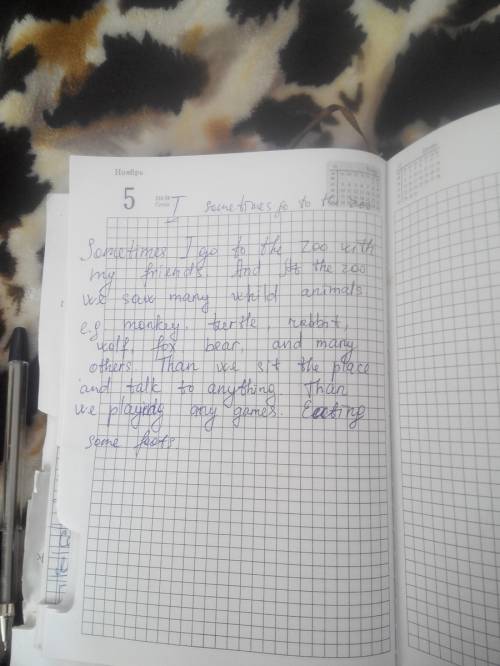 Ноябрь
5
I sometimes go to the zoo
Sometimes I go to the zoo with
my friends. And At the zoo
we saw many whild animals
e.g monkey, turtle, rabbit,
wolf, fox bear, and many
others. Than we sit the place
and talk to anything. Than
we playidy any games. Eating
some foots